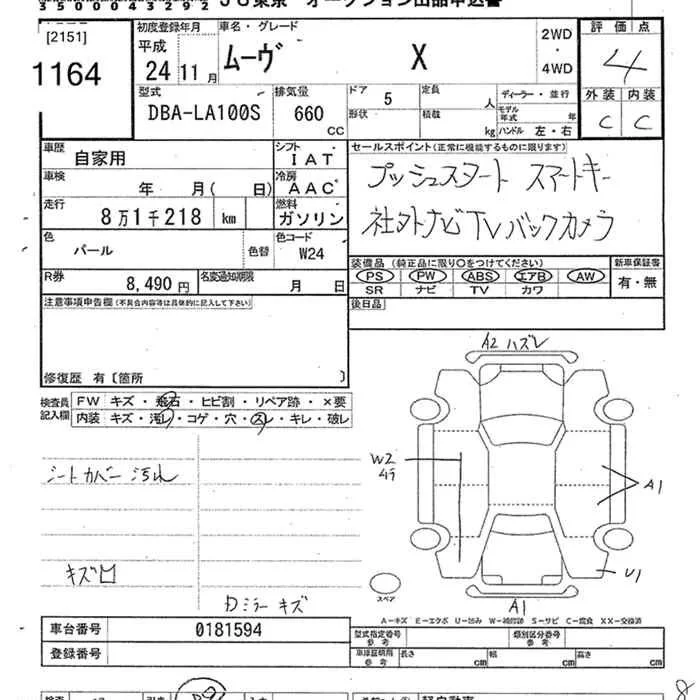 35000043292 JU東京 オークション出品申込書
[2151]
1164
初度登録年月
平成
24 11 月
車名・グレード
ムーヴ X
2WD
・
4WD
評価点
4
外装 内装
C C
型式
DBA-LA100S
排気量
660
CC
ドア
5
形状
定員
人
積載
kg
ディーラー・並行
モデル年式 年
ハンドル 左・右
車歴
自家用
シフト
IAT
車検
年 月( 日)
冷房
AAC
走行
8万1千218 km
燃料
ガソリン
色
パール
色替
色コード
W24
R券
8,490 円
名変通知期限
月 日
セールスポイント(正常に機能するものに限ります)
プッシュスタート スマートキー
社外ナビTVバックカメラ
装備品(純正品に限り〇をつけてください)
PS PW ABS エアB AW
SR ナビ TV カワ
新車保証書
有・無
後日品
注意事項申告欄(不具合内容等は具体的に記入して下さい)
修復歴 有〔箇所 〕
検査員記入欄
FW キズ・飛石・ヒビ割・リペア跡・×要
内装 キズ・汚れ・コゲ・穴・スレ・キレ・破レ
シートカバー汚れ
キズ凹
Dミラーキズ
A2 ハズレ
W2
A1
U1
A1
スペア
A−キズ E−エクボ U−凹み W−補修跡 S−サビ C−腐食 XX−交換済
車台番号 0181594
登録番号
型式指定番号
参考
類別区分番号
参考
車庫証明用
参考
長さ cm
幅 cm
高さ cm